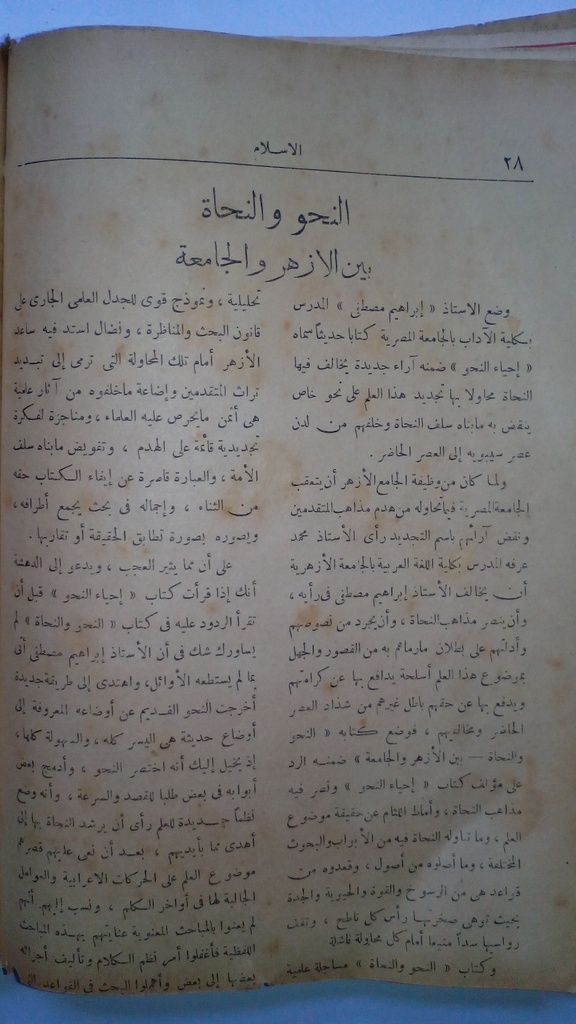 ٢٨
الاسلام
النحو والنحاة
بين الأزهر والجامعة
وضع الاستاذ « إبراهيم مصطفى » المدرس
بكلية الآداب بالجامعة المصرية كتابا حديثا سماه
« إحياء النحو » ضمنه آراء جديدة يخالف فيها
النحاة محاولا بها تجديد هذا العلم على نحو خاص
ينقض به مابناه سلف النحاة وخلفهم من لدن
عصر سيبويه إلى العصر الحاضر .
ولما كان من وظيفة الجامع الأزهر أن يتعقب
الجامعة المصرية فيما تحاوله من هدم مذاهب المتقدمين
ونقض آرائهم باسم التجديد رأى الأستاذ محمد
عرفه المدرس بكلية اللغة العربية بالجامعة الأزهرية
أن يخالف الأستاذ إبراهيم مصطفى فى رأيه ،
وأن ينصر مذاهب النحاة ، وأن يجرد من نصوصهم
وأدلتهم على بطلان مارماهم به من القصور والجهل
بموضوع هذا العلم أسلحة يدافع بها عن كرامتهم
ويدفع بها عن حقهم باطل غيرهم من شذاذ العصر
الحاضر ومخالفيهم ، فوضع كتابه « النحو
والنحاة — بين الأزهر والجامعة » ضمنه الرد
على مؤلف كتاب « إحياء النحو » ونصر فيه
مذاهب النحاة ، وأماط اللثام عن حقيقة موضوع
العلم ، وما تناوله النحاة فيه من الأبواب والبحوث
المختلفة ، وما أصلوه من أصول ، وقعدوه من
قواعد هى من الرسوخ والقوة والحيوية والجدة
بحيث توهى صخرتها رأس كل ناطح ، وتقف
رواسيها سداً منيعا أمام كل محاولة فاشلة
وكتاب « النحو والنحاة » مساجلة علمية
تحليلية ، ونموذج قوى للجدل العلمى الجارى على
قانون البحث والمناظرة ، ونضال استد فيه ساعد
الأزهر أمام تلك المحاولة التى ترمى إلى تبديد
تراث المتقدمين وإضاعة ماخلفوه من آثار علمية
هى أثمن مايحرص عليه العلماء ، ومناجزة لفكرة
تجديدية قائمة على الهدم ، وتقويض مابناه سلف
الأمة ، والعبارة قاصرة عن إيفاء الكتاب حقه
من الثناء ، وإجماله فى بحث يجمع أطرافه ،
ويصوره بصورة تطابق الحقيقة أو تقاربها .
على أن مما يثير العجب ، ويدعو إلى الدهشة
أنك إذا قرأت كتاب « إحياء النحو » قبل أن
تقرأ الردود عليه فى كتاب « النحو والنحاة » لم
يساورك شك فى أن الأستاذ إبراهيم مصطفى أتى
بما لم يستطعه الأوائل، واهتدى إلى طريقة جديدة
أخرجت النحو القديم عن أوضاعه المعروفة إلى
أوضاع حديثة هى اليسر كله ، والسهولة كلها ،
إذ يخيل إليك أنه اختصر النحو ، وأدمج بعض
أبوابه فى بعض طلبا للقصد والسرعة ، وأنه وضع
نظما جديدة للعلم رأى أن يرشد النحاة بها إلى
أهدى مما بأيديهم ، بعد أن نعى عليهم قصرهم
موضوع العلم على الحركات الاعرابية والعوامل
الجالبة لها فى أواخر الكلم ، ونسب إليهم أنهم
لم يعنوا بالمباحث المعنوية عنايتهم بهذه المباحث
اللفظية فأغفلوا أمر نظم الكلام وتأليف أجزائه
بعضها إلى بعض وأهملوا البحث فى القواعد التى